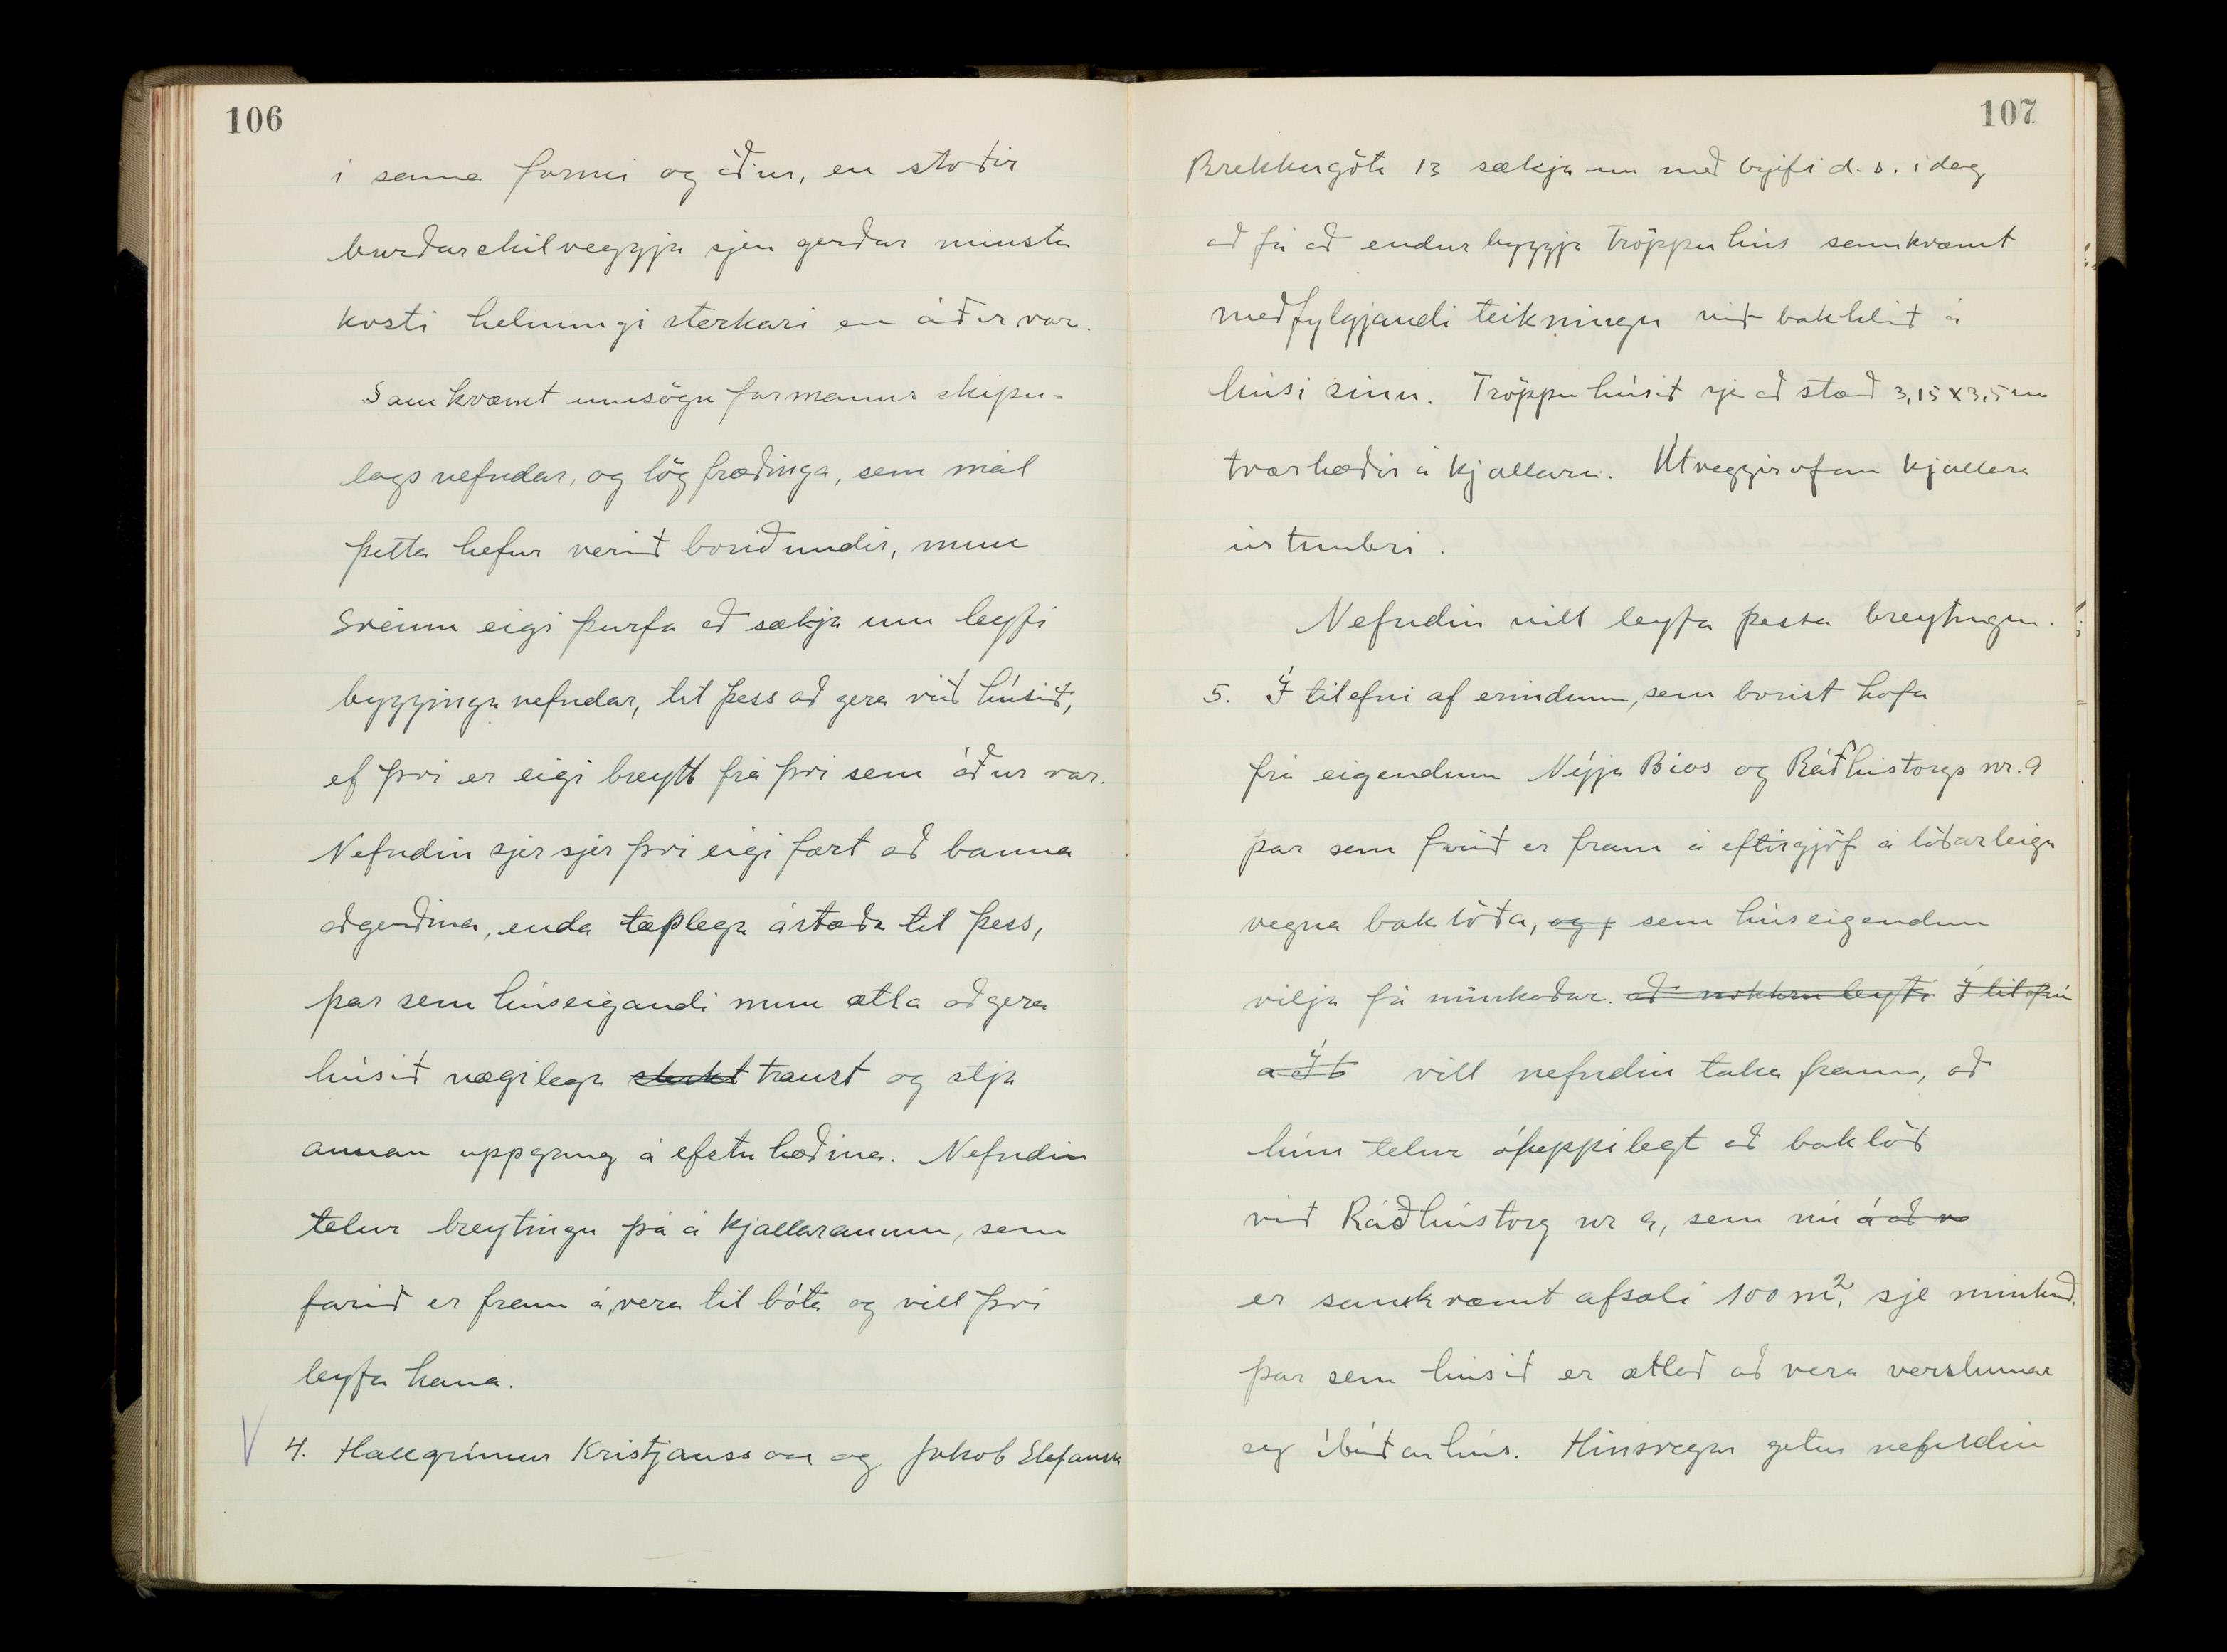 106
í sama formi og áður, en stoðir
burðarskilveggja sjeu gerðar minsta
kosti helmingi sterkari en áður var.
Samkvæmt umsögn formanns skipu-
lagsnefndar, og lögfræðinga, sem mál
þetta hefur verið borið undir, mun
Sveinn eigi þurfa að sækja um leyfi
bygginganefndar, til þess að gera við húsið,
ef því er eigi breytt frá því sem áður var.
Nefndin sjer sjer því eigi fært að banna
aðgerðina, enda tæplega ástæða til þess,
þar sem húseigandi mun ætla að gera
húsið nægilega sterkt traust og stja
annan uppgang á efstu hæðina. Nefndin
telur breytingu þá á kjallaranum, sem
farið er fram á, vera til bóta og vill því
leyfa hana.
V 4. Hallgrímur Kristjansson og Jakob
107
Brekkugötu 13 sækja um með brjefi d. s. í dag
að fá að endurbyggja tröppuhús samkvæmt
meðfylgjandi teikningu við bakhlið á
húsi sínu. Tröppuhúsið sje að stærð 3,15 x 3,5 m
tvær hæðir á kjallara. Útveggir ofan kjallara
úr timbri.
Nefndin vill leyfa þessa breytingu.
5. Í tilefni af erindum, sem borist hafa
frá eigendum Nýja Bios og Ráðhústorgs nr. 9
þar sem farið er fram á eftirgjöf á lóðarleigu
vegna baklóða, og, sem húseigendum
vilja fá minkaðar. að nokkru leyti Í tilefni
a Í t vill nefndin taka fram, að
hún telur óheppilegt að baklóð
við Ráðhústorg nr 9, sem nú á að ve
er samkvæmt afsali 100 m2, sje minkuð,
þar sem húsið er ætlað að vera verslunar
og íbúðarhús. Hinsvegar getur nefndin